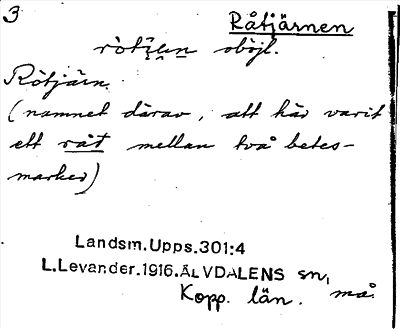 3
Råtjärnen
rò̀tįlen oböjl.
Rötjärn.
(namnet därav, att här varit
ett råt mellan två betes-
marker)
Landsm. Upps. 301:4
L. Levander. 1916. ÄLVDALENS sn,
Kopp. län. må.